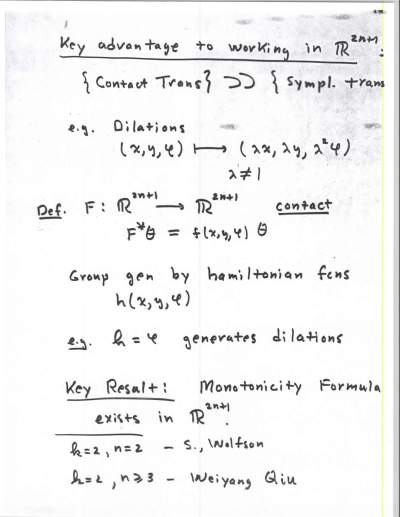 Key advantage to working in ℝ²ⁿ⁺¹:
{Contact Trans} ⊃⊃ {Sympl. trans
e.g. Dilations
(x,y,φ) ↦ (λx, λy, λ²φ)
λ≠1
Def. F: ℝ²ⁿ⁺¹ → ℝ²ⁿ⁺¹ contact
F*θ = f(x,y,φ) θ
Group gen by hamiltonian fcns
h(x,y,φ)
e.g. h = φ generates dilations
Key Result: Monotonicity Formula
exists in ℝ²ⁿ⁺¹.
k=2, n=2 – S., Wolfson
k=2, n≥3 – Weiyang Qiu